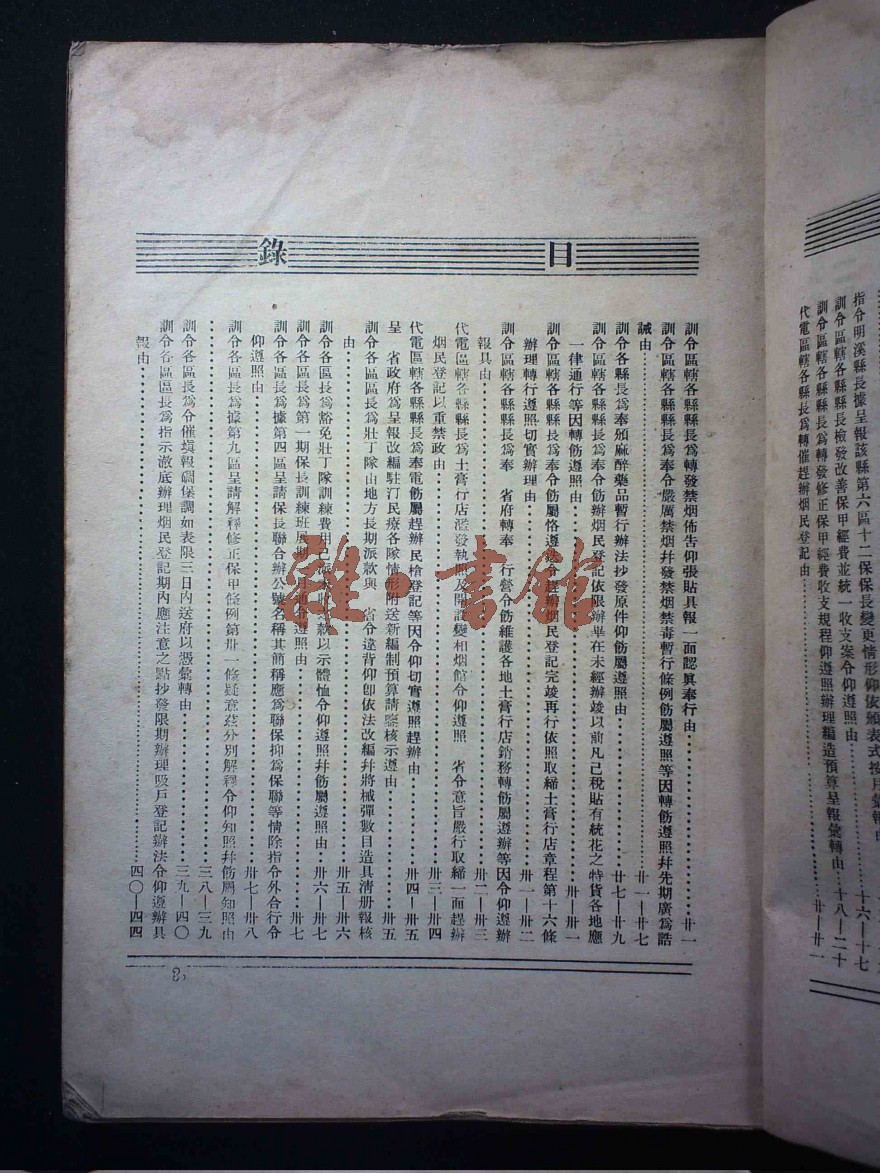 指令明溪縣長據呈報該縣第六區十二保保長變更情形仰依頒表式按月彙報由
訓令區轄各縣縣長檢發改善保甲經費並統一收支案令仰遵照由……十六—十七
訓令區轄各縣縣長爲轉發修正保甲經費收支規程仰遵照辦理編造預算呈報彙轉由……十八—二十
代電區轄各縣長爲轉催趕辦烟民登記由……廿—廿一
目錄
訓令區轄各縣縣長爲轉發禁烟佈告仰張貼具報一面認眞奉行由……廿一
訓令區轄各縣縣長爲奉令嚴厲禁烟幷發禁烟禁毒暫行條例飭屬遵照等因轉飭遵照幷先期廣爲誥
誡由……廿一—廿七
訓令各縣長爲奉頒麻醉藥品暫行辦法抄發原件仰飭屬遵照由……廿七—廿九
訓令區轄各縣縣長爲奉令飭辦烟民登記依限辦畢在未經辦竣以前凡已稅貼有統花之特貨各地應
一律通行等因轉飭遵照由……卅—卅一
訓令區轄各縣縣長爲奉令飭屬恪遵法令趕辦烟民登記完竣再行依照取締土膏行店章程第十六條
辦理轉行遵照切實辦理由……卅一—卅二
訓令區轄各縣縣長爲奉 省府轉奉 行營令飭維護各地土膏行店銷務轉飭屬遵辦等因令仰遵辦
報具由……卅二—卅三
代電區轄各縣縣長爲土膏行店濫發執照及開設變相烟館令仰遵照 省令意旨嚴行取締一面趕辦
烟民登記以重禁政由……卅三—卅四
代電區轄各縣縣長爲奉電飭屬趕辦民槍登記等因令仰切實遵照趕辦由……卅四—卅五
呈 省政府爲呈報改編駐汀民療各隊情形附送新編制預算請鑒核示遵由……卅五
訓令各區區長爲壯丁隊由地方長期派欵與 省令違背仰卽依法改編幷將械彈數目造具淸册報核
由……卅五—卅六
訓令各區長爲豁免壯丁隊訓練費用已派未收之欵以示體恤令仰遵照幷飭屬遵照由……卅六—卅七
訓令各區長爲第一期保長訓練班展期一月通令遵照由……卅七
訓令各區長爲據第四區呈請保長聯合辦公號名稱其簡稱應爲聯保抑爲保聯等情除指令外合行令
仰遵照由……卅七—卅八
訓令各區長爲據第九區呈請解釋修正保甲條例第卅一條疑意茲分別解釋令仰知照幷飭屬知照由
……三八—三九
訓令各區長爲令催塡報碉堡調如表限三日內送府以憑彙轉由……三九—四〇
訓令各區區長爲指示澈底辦理烟民登記期內應注意之點抄發限期辦理吸戶登記辦法令仰遵辦具
報由……四〇—四四
2
雜書館